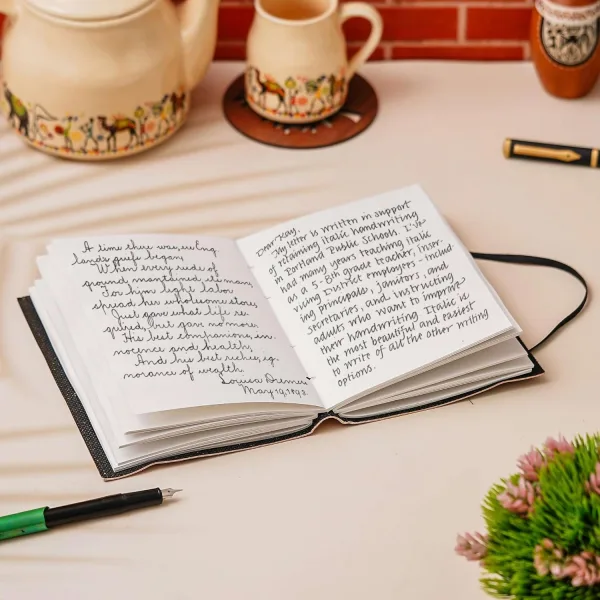 A time there was, ere Eng
lands griefs began,
When every rude of
ground maintained its man;
For him light labor
spread her wholesome store,
Just gave what life re-
quired, but gave no more.
His best companions, in-
nocence and health;
And his best riches, ig-
norance of wealth.
Louisa
May 19, 1892.
Dear Kay,
My letter is written in support
of retaining italic handwriting
in Portland Public Schools. I've
had many years teaching italic
as a 5-8th grade teacher, inser-
vicing District employers - includ-
ing principals, janitors, and
secretaries, and instructing
adults who want to improve
their handwriting. Italic is
the most beautiful and easiest
to write of all the other writing
options.